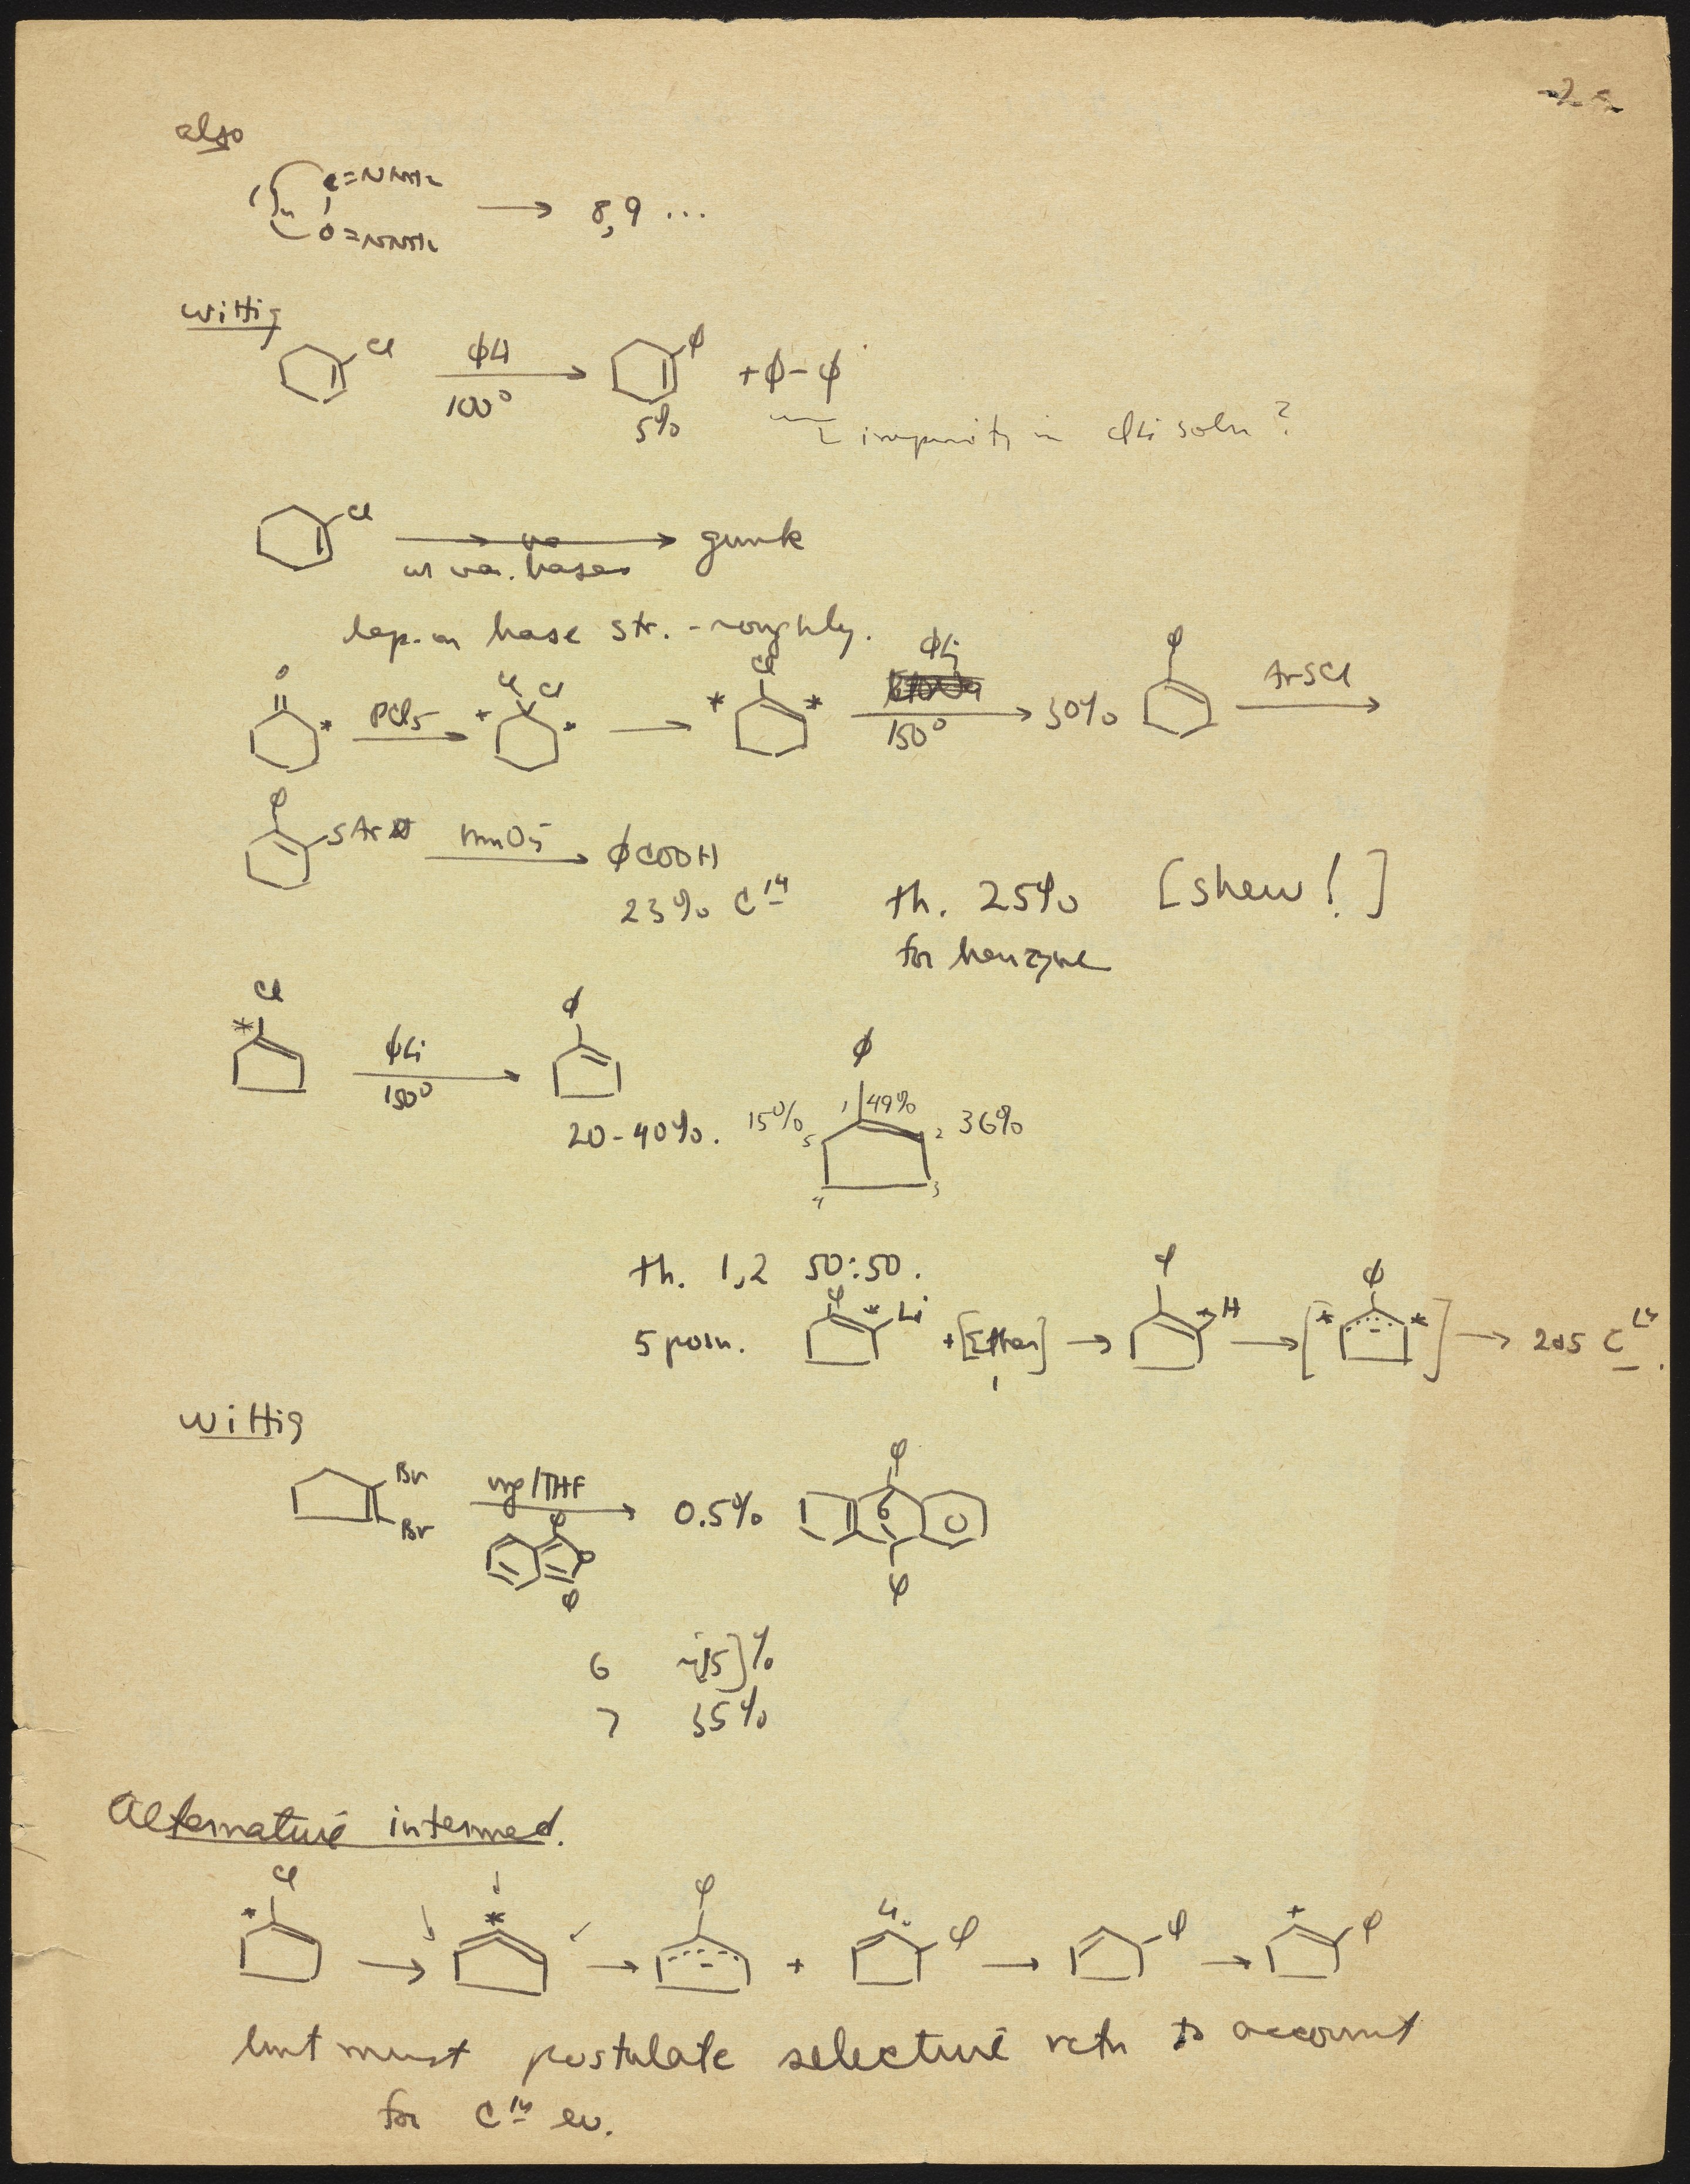 also
C=NNH₂
C=NNH₂
→ 8,9 ...
Wittig
Cl
ϕLi
100°
ϕ
5%
+ϕ-ϕ
impurity in ϕLi soln?
Cl
gunk
w va. bases
dep. on base str. - roughly.
O
*
PCl5
Cl Cl
* *
Cl
* *
ϕLi
150°
30%
ϕ
ArSCl
ϕ
SAr
MnO4⁻
ϕCOOH
23% C¹⁴
th. 25%
for benzyne
[show!]
Cl
*
ϕLi
150°
ϕ
20-40%.
ϕ
15% 5 1 49% 2 36%
4 3
th. 1,2 50:50.
5 posn.
ϕ * Li
+[Ether] →
ϕ * H
→ [* ϕ - *] → 2+5 C¹⁴.
Wittig
Br
Br
mg/THF
ϕ
O
ϕ
0.5%
ϕ
ϕ
6 ~15]%
7 35%
Alternative intermed.
Cl
* → * → ϕ - + ϕ → ϕ → * ϕ
but must postulate selective rctn to account
for C¹⁴ ev.